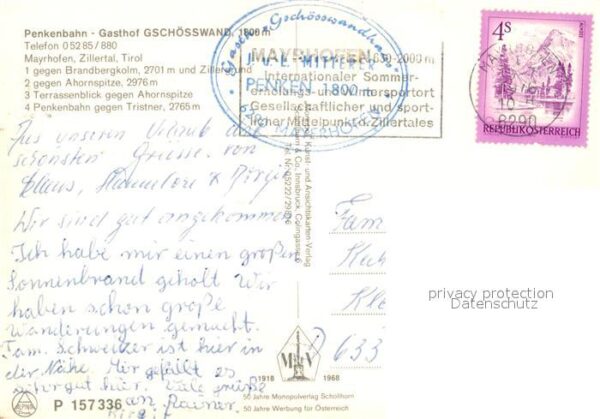 Penkenbahn - Gasthof GSCHÖSSWAND, 1800 m
Telefon 0 52 85 / 880
Mayrhofen, Zillertal, Tirol
1 gegen Brandbergkolm, 2701 m und Zillergrund
2 gegen Ahornspitze, 2976 m
3 Terrassenblick gegen Ahornspitze
4 Penkenbahn gegen Tristner, 2765 m
Gasthof Gschösswandhaus
J. u. L. MITTERER
PENKEN 1800 m
MAYRHOFEN
MAYRHOFEN 630-2000 m
Internationaler Sommer-
erholungs- Wintersportort
Gesellschaftlicher und sport-
licher Mittelpunkt d. Zillertales
4S
REPUBLIK ÖSTERREICH
6290
Aus unseren Urlaub die
schönsten Grüsse. von
Klaus, Hannelore &
Wir sind gut angekommen
Ich habe mir einen großen
Sonnenbrand geholt Wir
haben schon große
Wanderungen gemacht.
Fam. Schweizer ist hier in
der Nähe. Mir gefällt es
sehr gut hier. Viele grüße
an Rainer.
Birgit
Kunst- und Ansichtskarten-Verlag
& Co., Innsbruck,
Tel. Nr.
Fam
633
privacy protection
Datenschutz
1918 1968
50 Jahre Monopolverlag Schöllhorn
50 Jahre Werbung für Österreich
ALPINA
P 157336